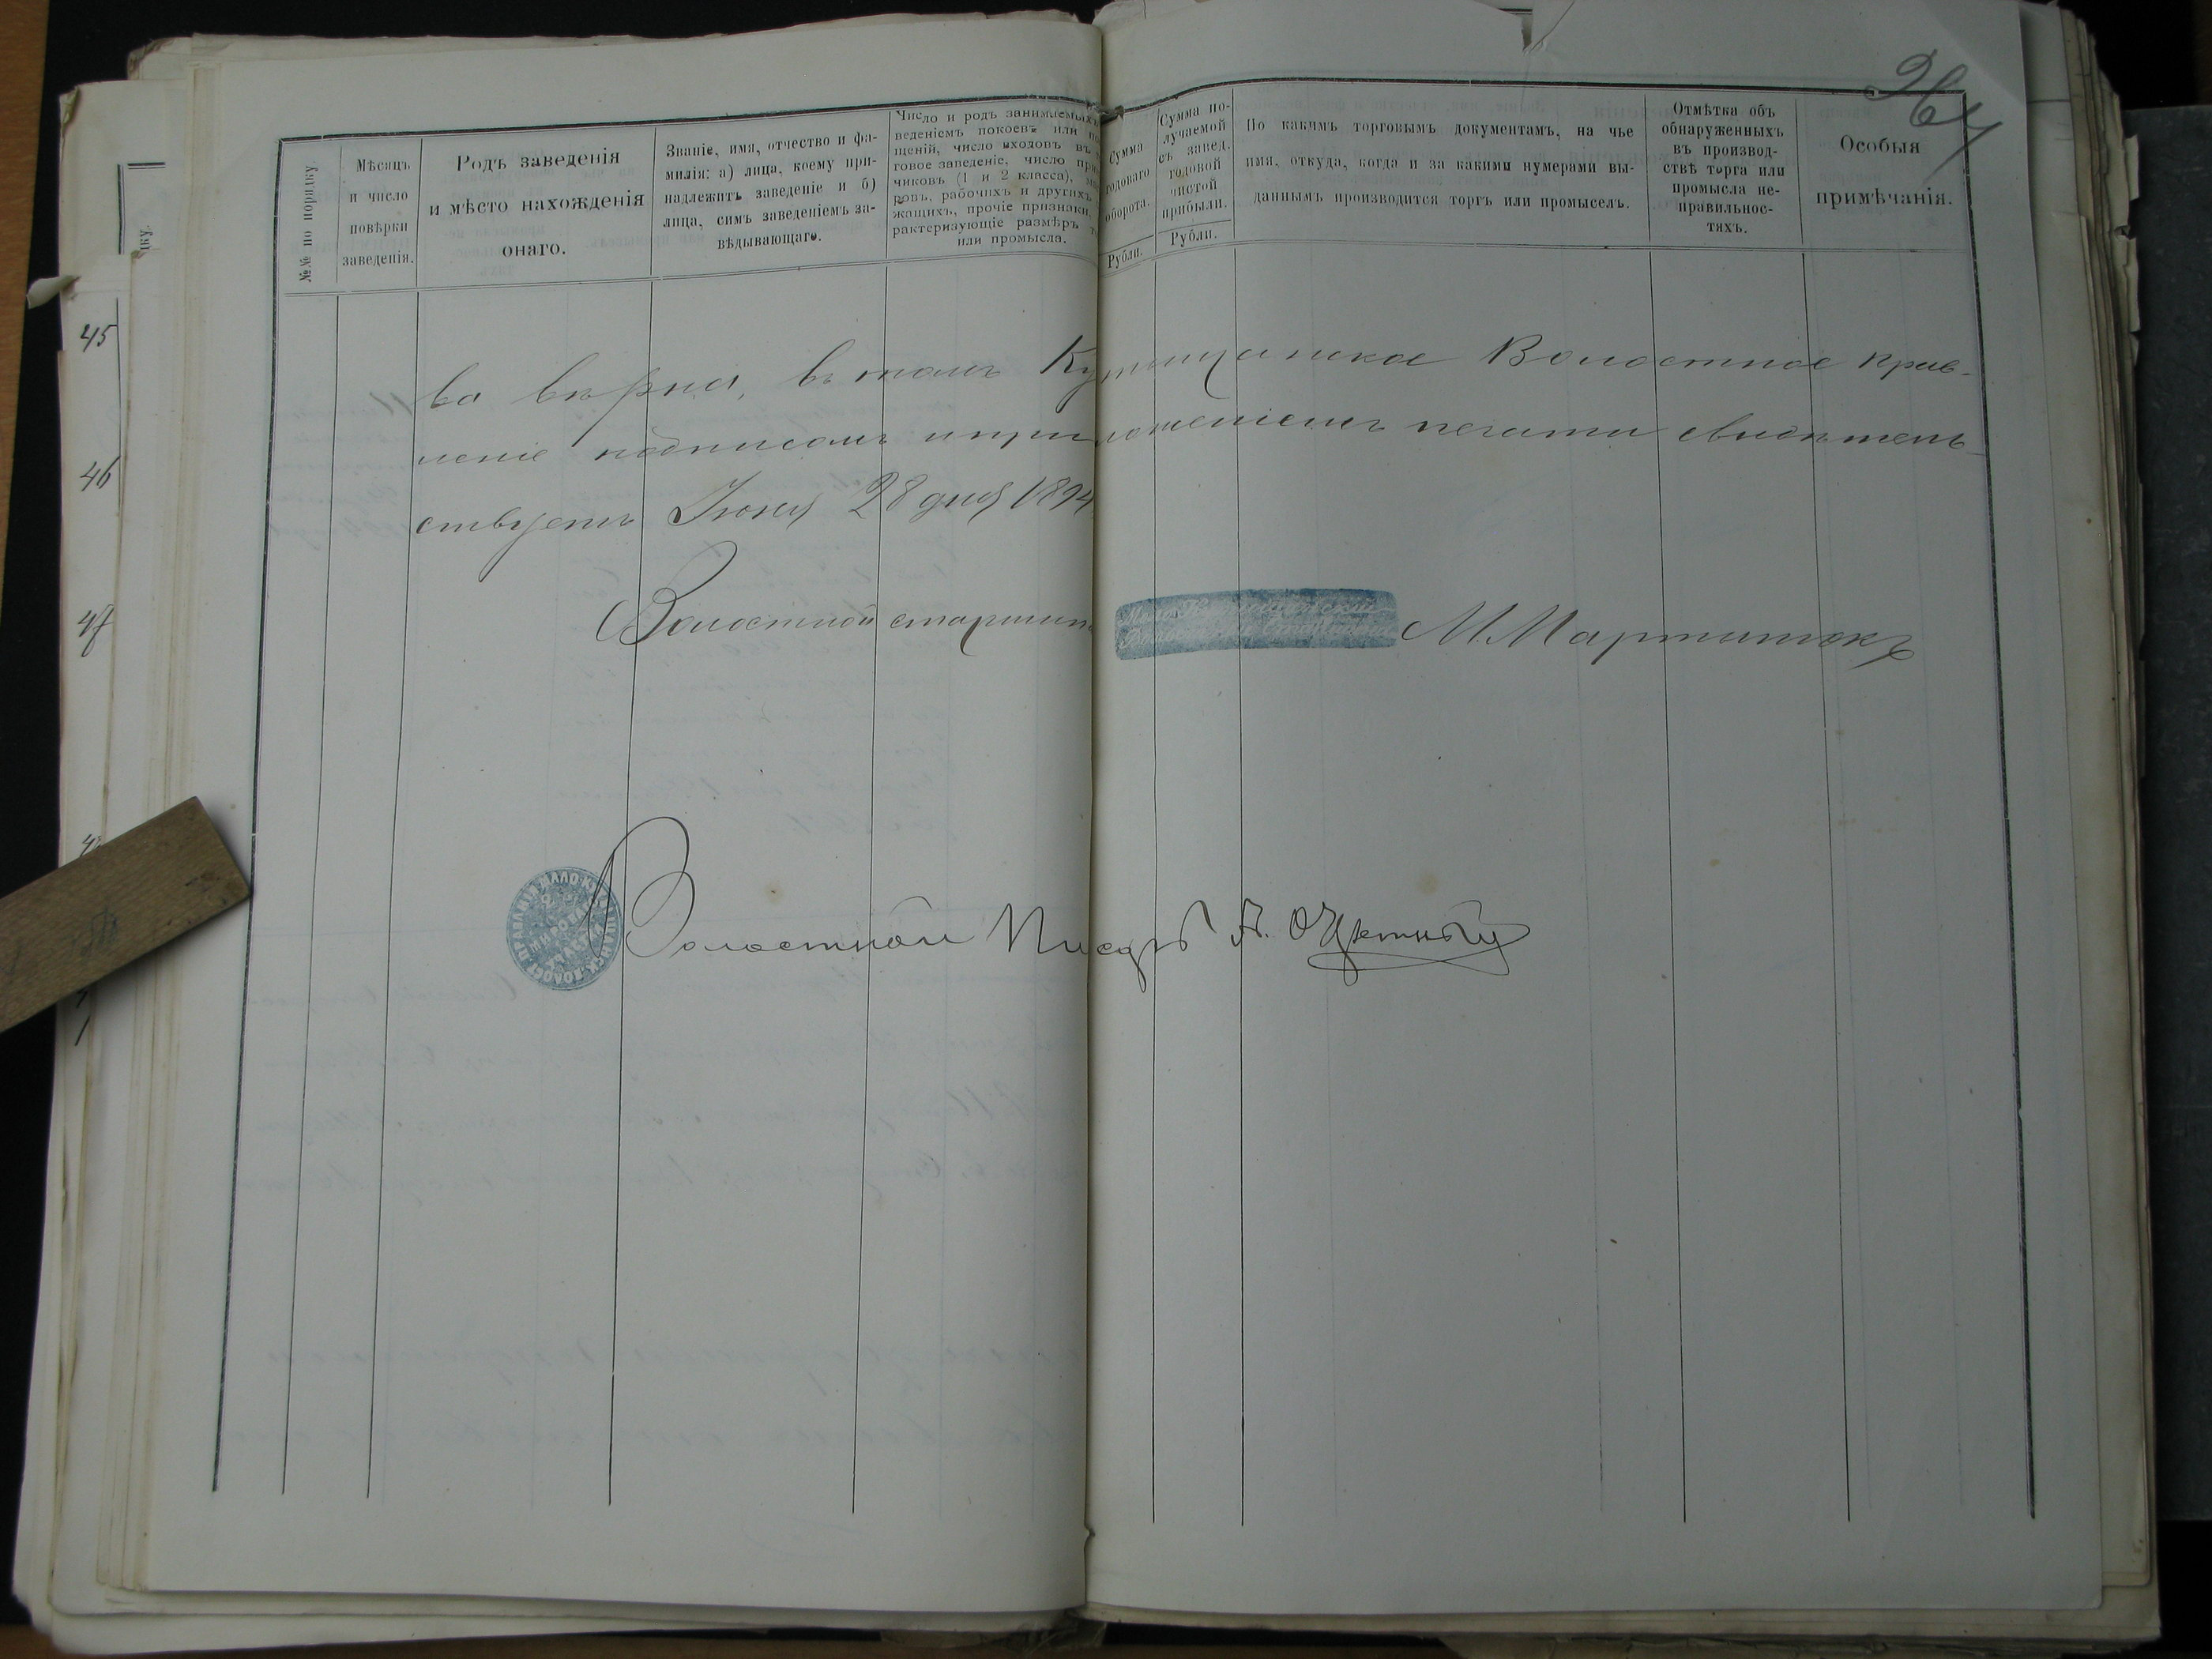 264
№№ по порядку
Мѣсяцъ
и число
повѣрки
заведенія.
Родъ заведенія
и мѣсто нахожденія
онаго.
Званіе, имя, отчество и фа-
милія: а) лица, коему при-
надлежитъ заведеніе и б)
лица, симъ заведеніемъ за-
вѣдывающаго.
Число и родъ занимаемыхъ
веденіемъ покоевъ или по
щеній, число входовъ въ
говое заведеніе, число при
чиковъ (1 и 2 класса),
ровъ, рабочихъ и другихъ
жащихъ, прочіе признаки,
рактеризующіе размѣръ
или промысла.
Сумма
годоваго
оборота.
Рубли.
Сумма по-
лучаемой
съ завед.
годовой
чистой
прибыли.
Рубли.
По какимъ торговымъ документамъ, на чье
имя, откуда, когда и за какими нумерами вы-
даннымъ производится торгъ или промыселъ.
Отмѣтка объ
обнаруженныхъ
въ производ-
ствѣ торга или
промысла не-
правильнос-
тяхъ.
Особыя
примѣчанія.
ва вѣрна, въ томъ Купищанское Волостное Прав-
леніе подписомъ и приложеніемъ печати свидѣтель-
ствуетъ Іюня 28 дня 1894
Волостной старшина М. Мартинюкъ
Волостной Писарь
45
46
47